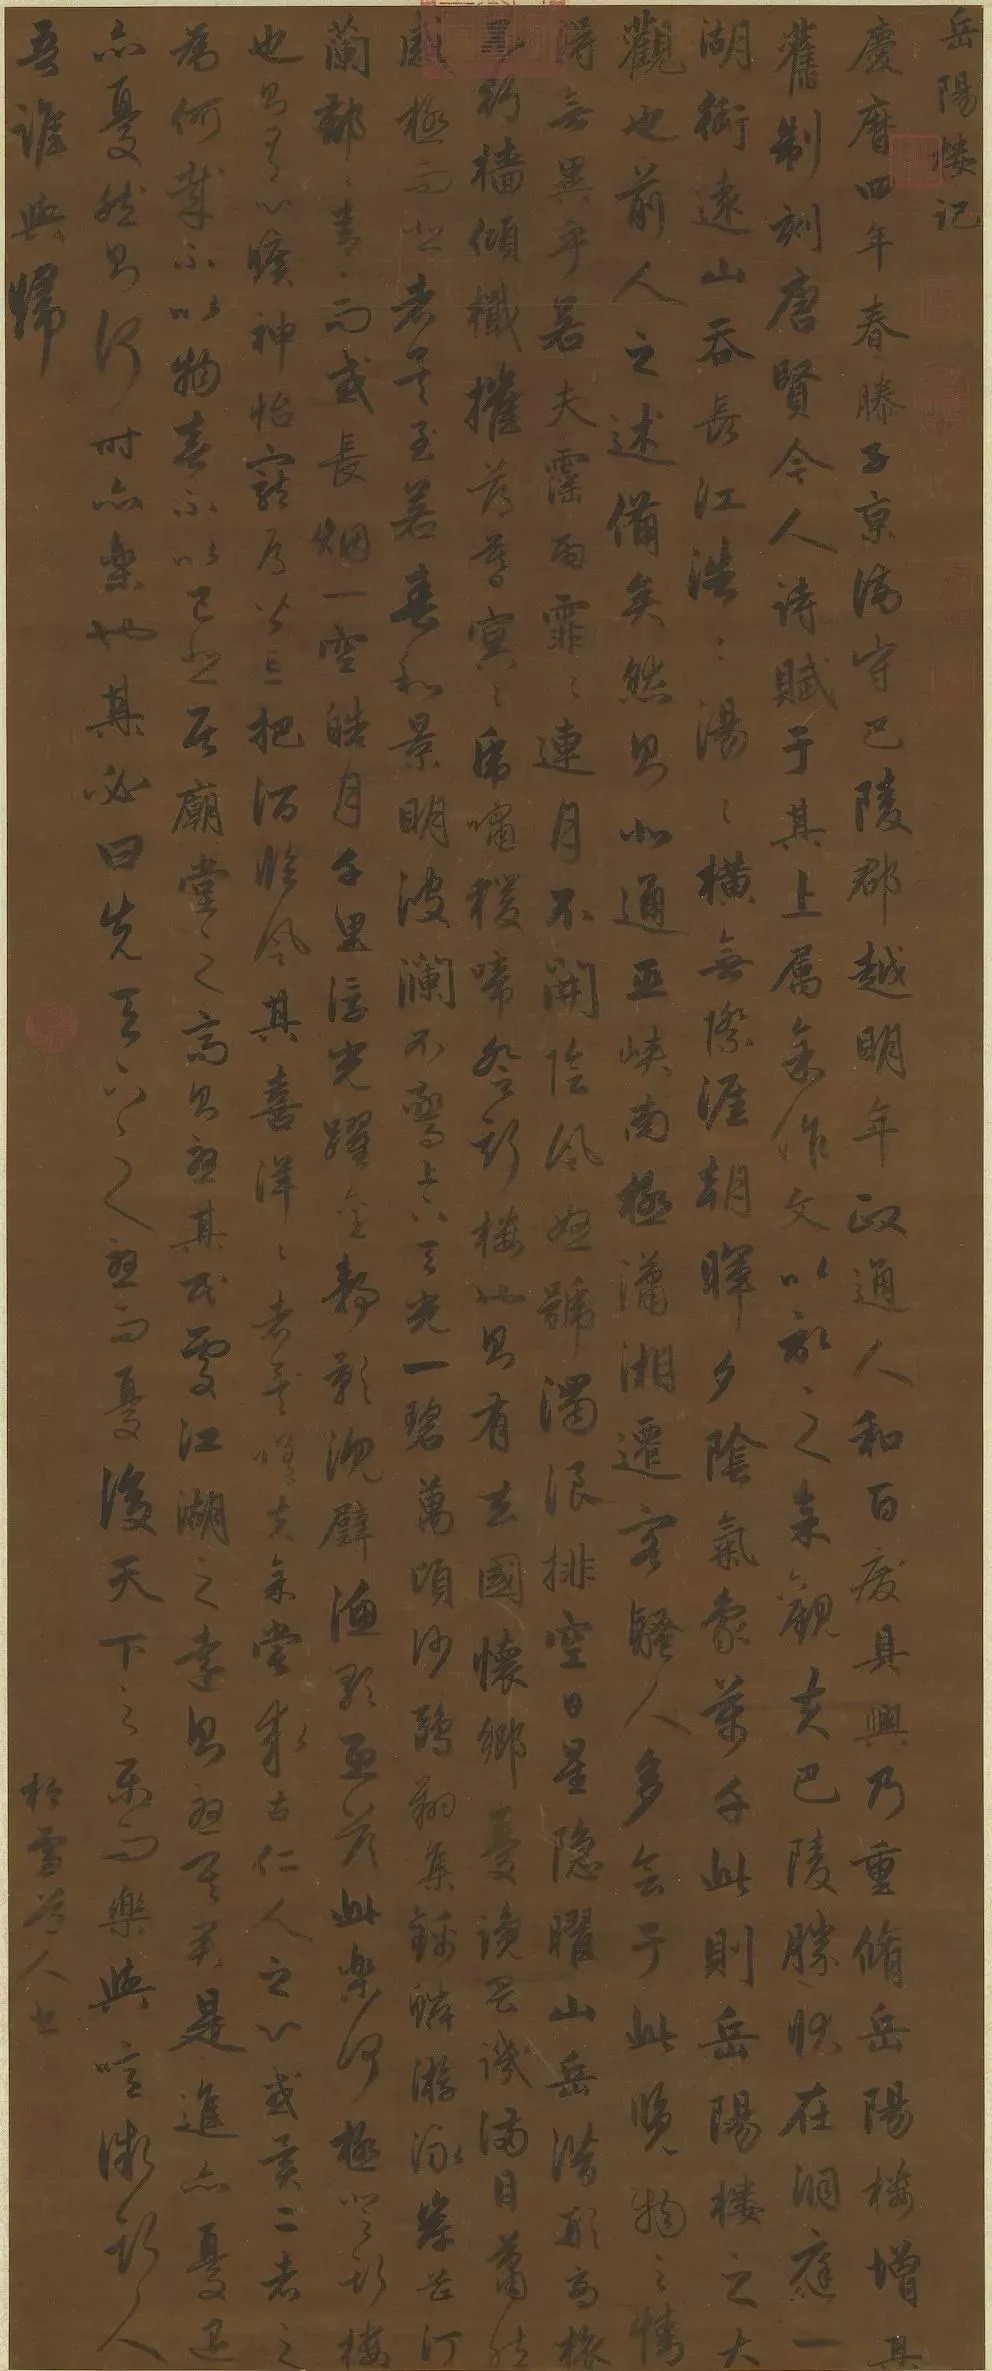 岳陽樓記
慶曆四年春滕子京謫守巴陵郡越明年政通人和百廢具興乃重脩岳陽樓增其
舊制刻唐賢今人詩賦于其上属余作文以記之余觀夫巴陵勝狀在洞庭一
湖銜遠山吞長江浩々湯々橫無際涯朝暉夕陰氣象萬千此則岳陽樓之大
觀也前人之述備矣然則北通巫峽南極瀟湘遷客騷人多会于此覽物之情
得無異乎若夫霪雨霏々連月不開陰風怒號濁浪排空日星隱曜山岳潜形商旅
不行檣傾檝摧薄暮冥々虎嘯猨啼登斯樓也則有去國懷鄉憂讒畏譏滿目蕭然
感極而悲者矣至若春和景明波瀾不驚上下天光一碧萬頃沙鷗翔集錦鱗游泳岸芷汀
蘭郁々青々而或長烟一空皓月千里浮光躍金静影沉璧漁歌互答此樂何極登斯樓
也則有心曠神怡寵辱皆忘把酒臨風其喜洋々者矣嗟夫余嘗求古仁人之心或異二者之
為何哉不以物喜不以己悲居廟堂之高則憂其民處江湖之遠則憂其君是進亦憂退
亦憂然則何时亦樂也其必曰先天下之憂而憂後天下之樂而樂與噫微斯人
吾誰與歸
松雪道人书